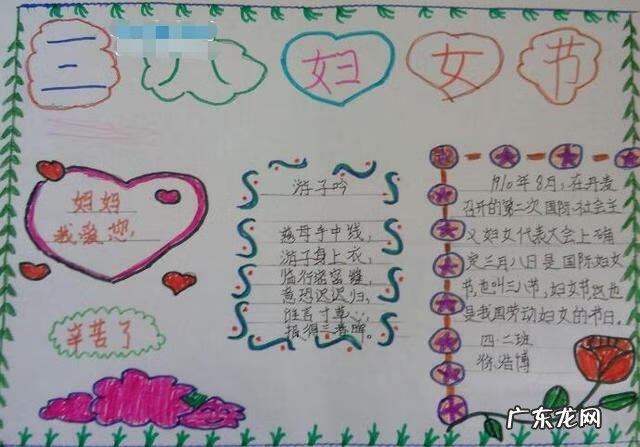 三 八 妇 女 节
妈妈
我爱您,
辛苦了
游子吟
慈母手中线,
游子身上衣,
临行密密缝,
意恐迟迟归,
谁言寸草
1910年8月,在丹麦
召开的第二次国际社会主
义妇女代表大会上确
定三月八日是国际妇女
节,也叫三八节,妇女节既也
是我国劳动妇女的节日,
四·二班
徐浩博
广东龙网